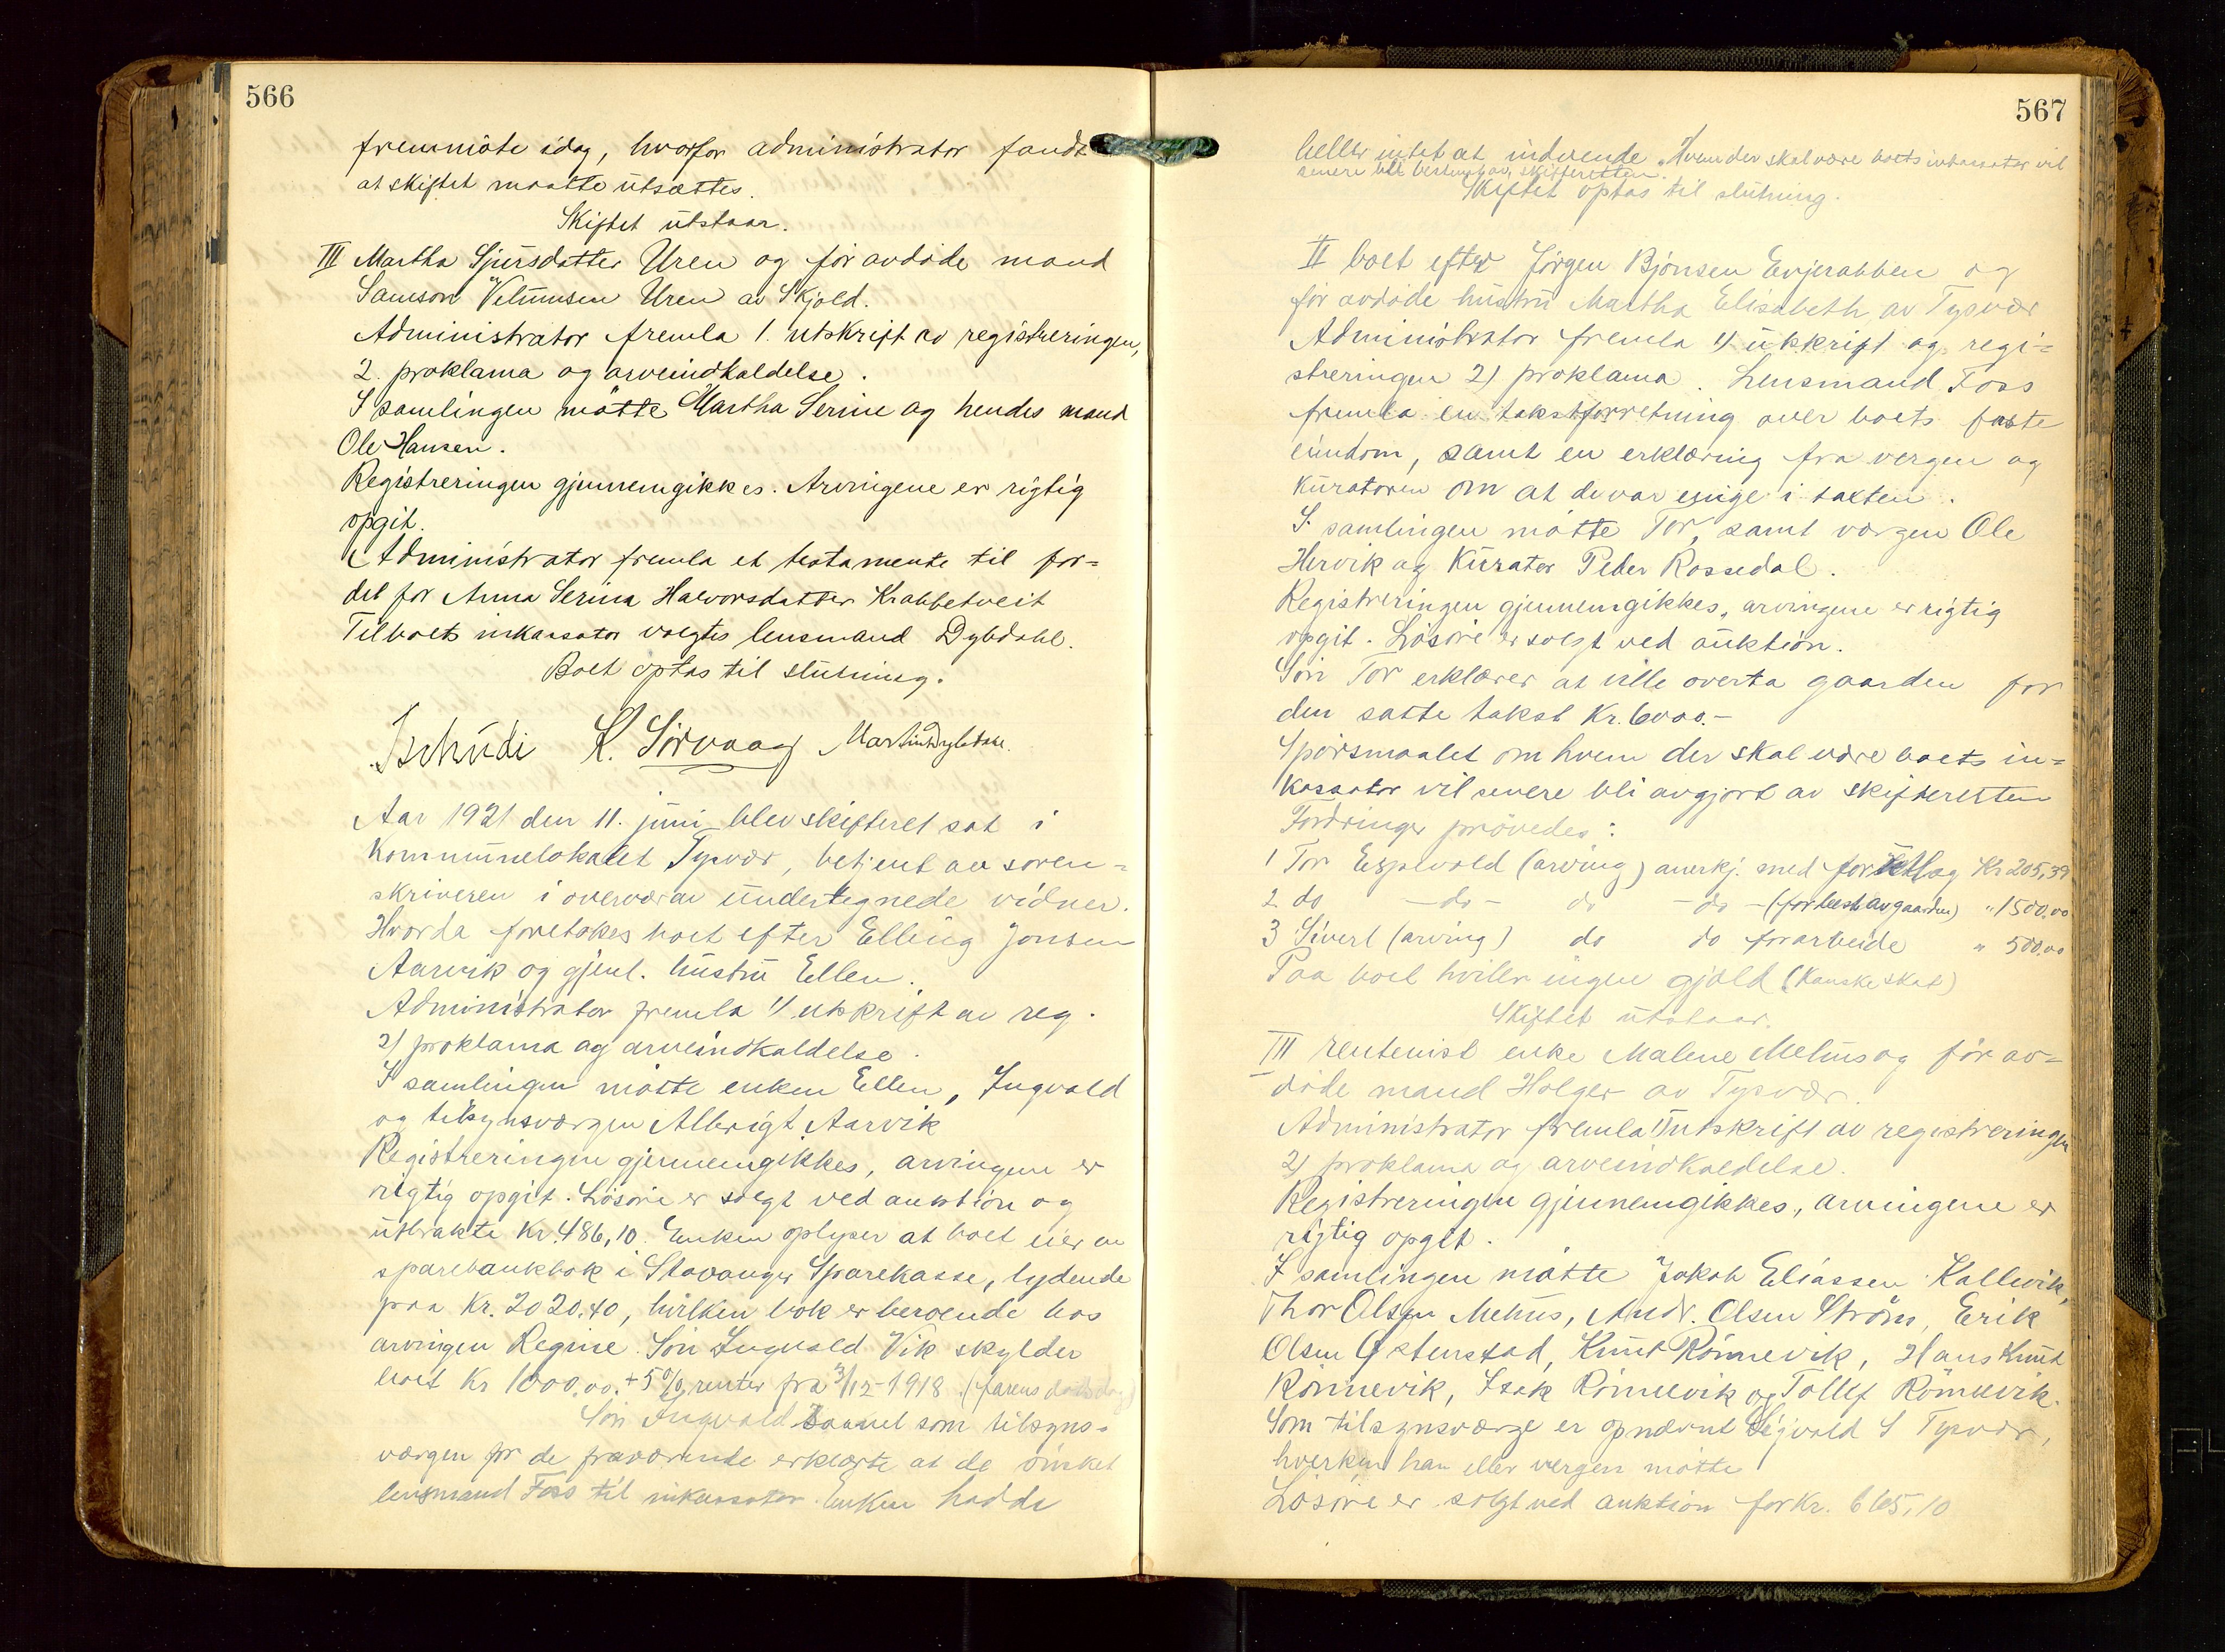 566
fremmöte idag, hvorfor administrator fandt
at skiftet maatte utsættes.
Skiftet utstaar.
III Martha Sjursdatter Uren og før avdøde mand
Samson Uren av Skjold.
Administrator fremla 1. utskrift av registreringen,
2. proklama og arveindkaldelse.
I samlingen møtte Martha Serine og hendes mand
Ole Hansen.
Registreringen gjennemgikkes. Arvingene er rigtig
opgit.
Administrator fremla et testamente til for=
del for Anna Serina Halvorsdatter Krabbetveit
Til boets inkassator valgtes lensmand Dybdahl.
Boet optas til slutning.
Tschudi K. Sörvaag Martin Dybdahl.
Aar 1921 den 11. juni blev skifteret sat i
Kommunelokalet Tysvær, betjent av soren=
skriveren i overvær av undertegnede vidner.
Hvorda foretokes boet efter Elling Jonsen
Aarvik og gjenl. hustru Ellen.
Administrator fremla 1/ utskrift av reg.
2) proklama og arveindkaldelse.
I samlingen møtte enken Ellen, Ingvald
og tilsynsværgen Albrigt Aarvik
Registreringen gjennemgikkes, arvingene er
rigtig opgit. Løsøre er solgt ved auktion og
utbrakte kr. 486,10. Enken oplyser at boet eier en
sparebankbok i Stavanger Sparekasse, lydende
paa Kr. 2020.40, hvilken bok er beroende hos
arvingen Regine. Søn Ingvald Vik skylder
boet Kr 1000.00. + 5% renter fra 3/12-1918. (farens dødsdag)
Søn Ingvald samt som tilsyns=
værgen for de fraværende erklærte at de ønsket
lensmand Foss til inkassator. Enken hadde
567
heller intet at indvende. Hvem der skal være boets inkassator vil
senere bli bestemt av skifteretten.
Skiftet optas til slutning.
II boet efter Jörgen Bjönsen Evjerabben og
før avdøde hustru Martha Elisabeth av Tysvær
Administrator fremla 1) utskrift og regi=
streringen 2) proklama. Lensmand Foss
fremla en takstforretning over boets faste
eiendom, samt en erklæring fra vergen og
Kuratoren om at de var enige i taxten.
I samlingen møtte Tor, samt værgen Ole
Hervik og Kurator Peder Rossedal.
Registreringen gjennemgikkes, arvingene er rigtig
opgit. Løsøre er solgt ved auktion.
Søn Tor erklærer at ville overta gaarden for
den satte takst Kr. 6000.-
Spørsmaalet om hvem der skal være boets in=
kassator vil senere bli avgjort av skifteretten
Fordringer prøvedes:
1 Tor Espevold (arving) anerkj. med Kr 205,39
2 do -do- do -do- (for heste av gaarden) " 1500.00
3 Sivert (arving) do do for arbeide " 500.00
Paa boet hviler ingen gjæld (Kanske skat)
Skiftet utstaar.
III rentenist enke Malene Mehus og før av=
døde mand Holger av Tysvær.
Administrator fremla 1) utskrift av registreringen
2) proklama og arveindkaldelse.
Registreringen gjennemgikkes, arvingene er
rigtig opgit.
I samlingen møtte Jakob Eliassen Kallevik,
Thor Olsen Mehus, Andr. Olsen Ström, Erik
Olsen Östenstad, Knut Rönnevik, Hans Knut
Rönnevik, Isak Rönnevik og Tollef Rönnevik.
Som tilsynsværge er opnævnt Sigvald S Tysvær,
hverken han eller vergen møtte
Løsøre er solgt ved auktion for Kr. 665,10